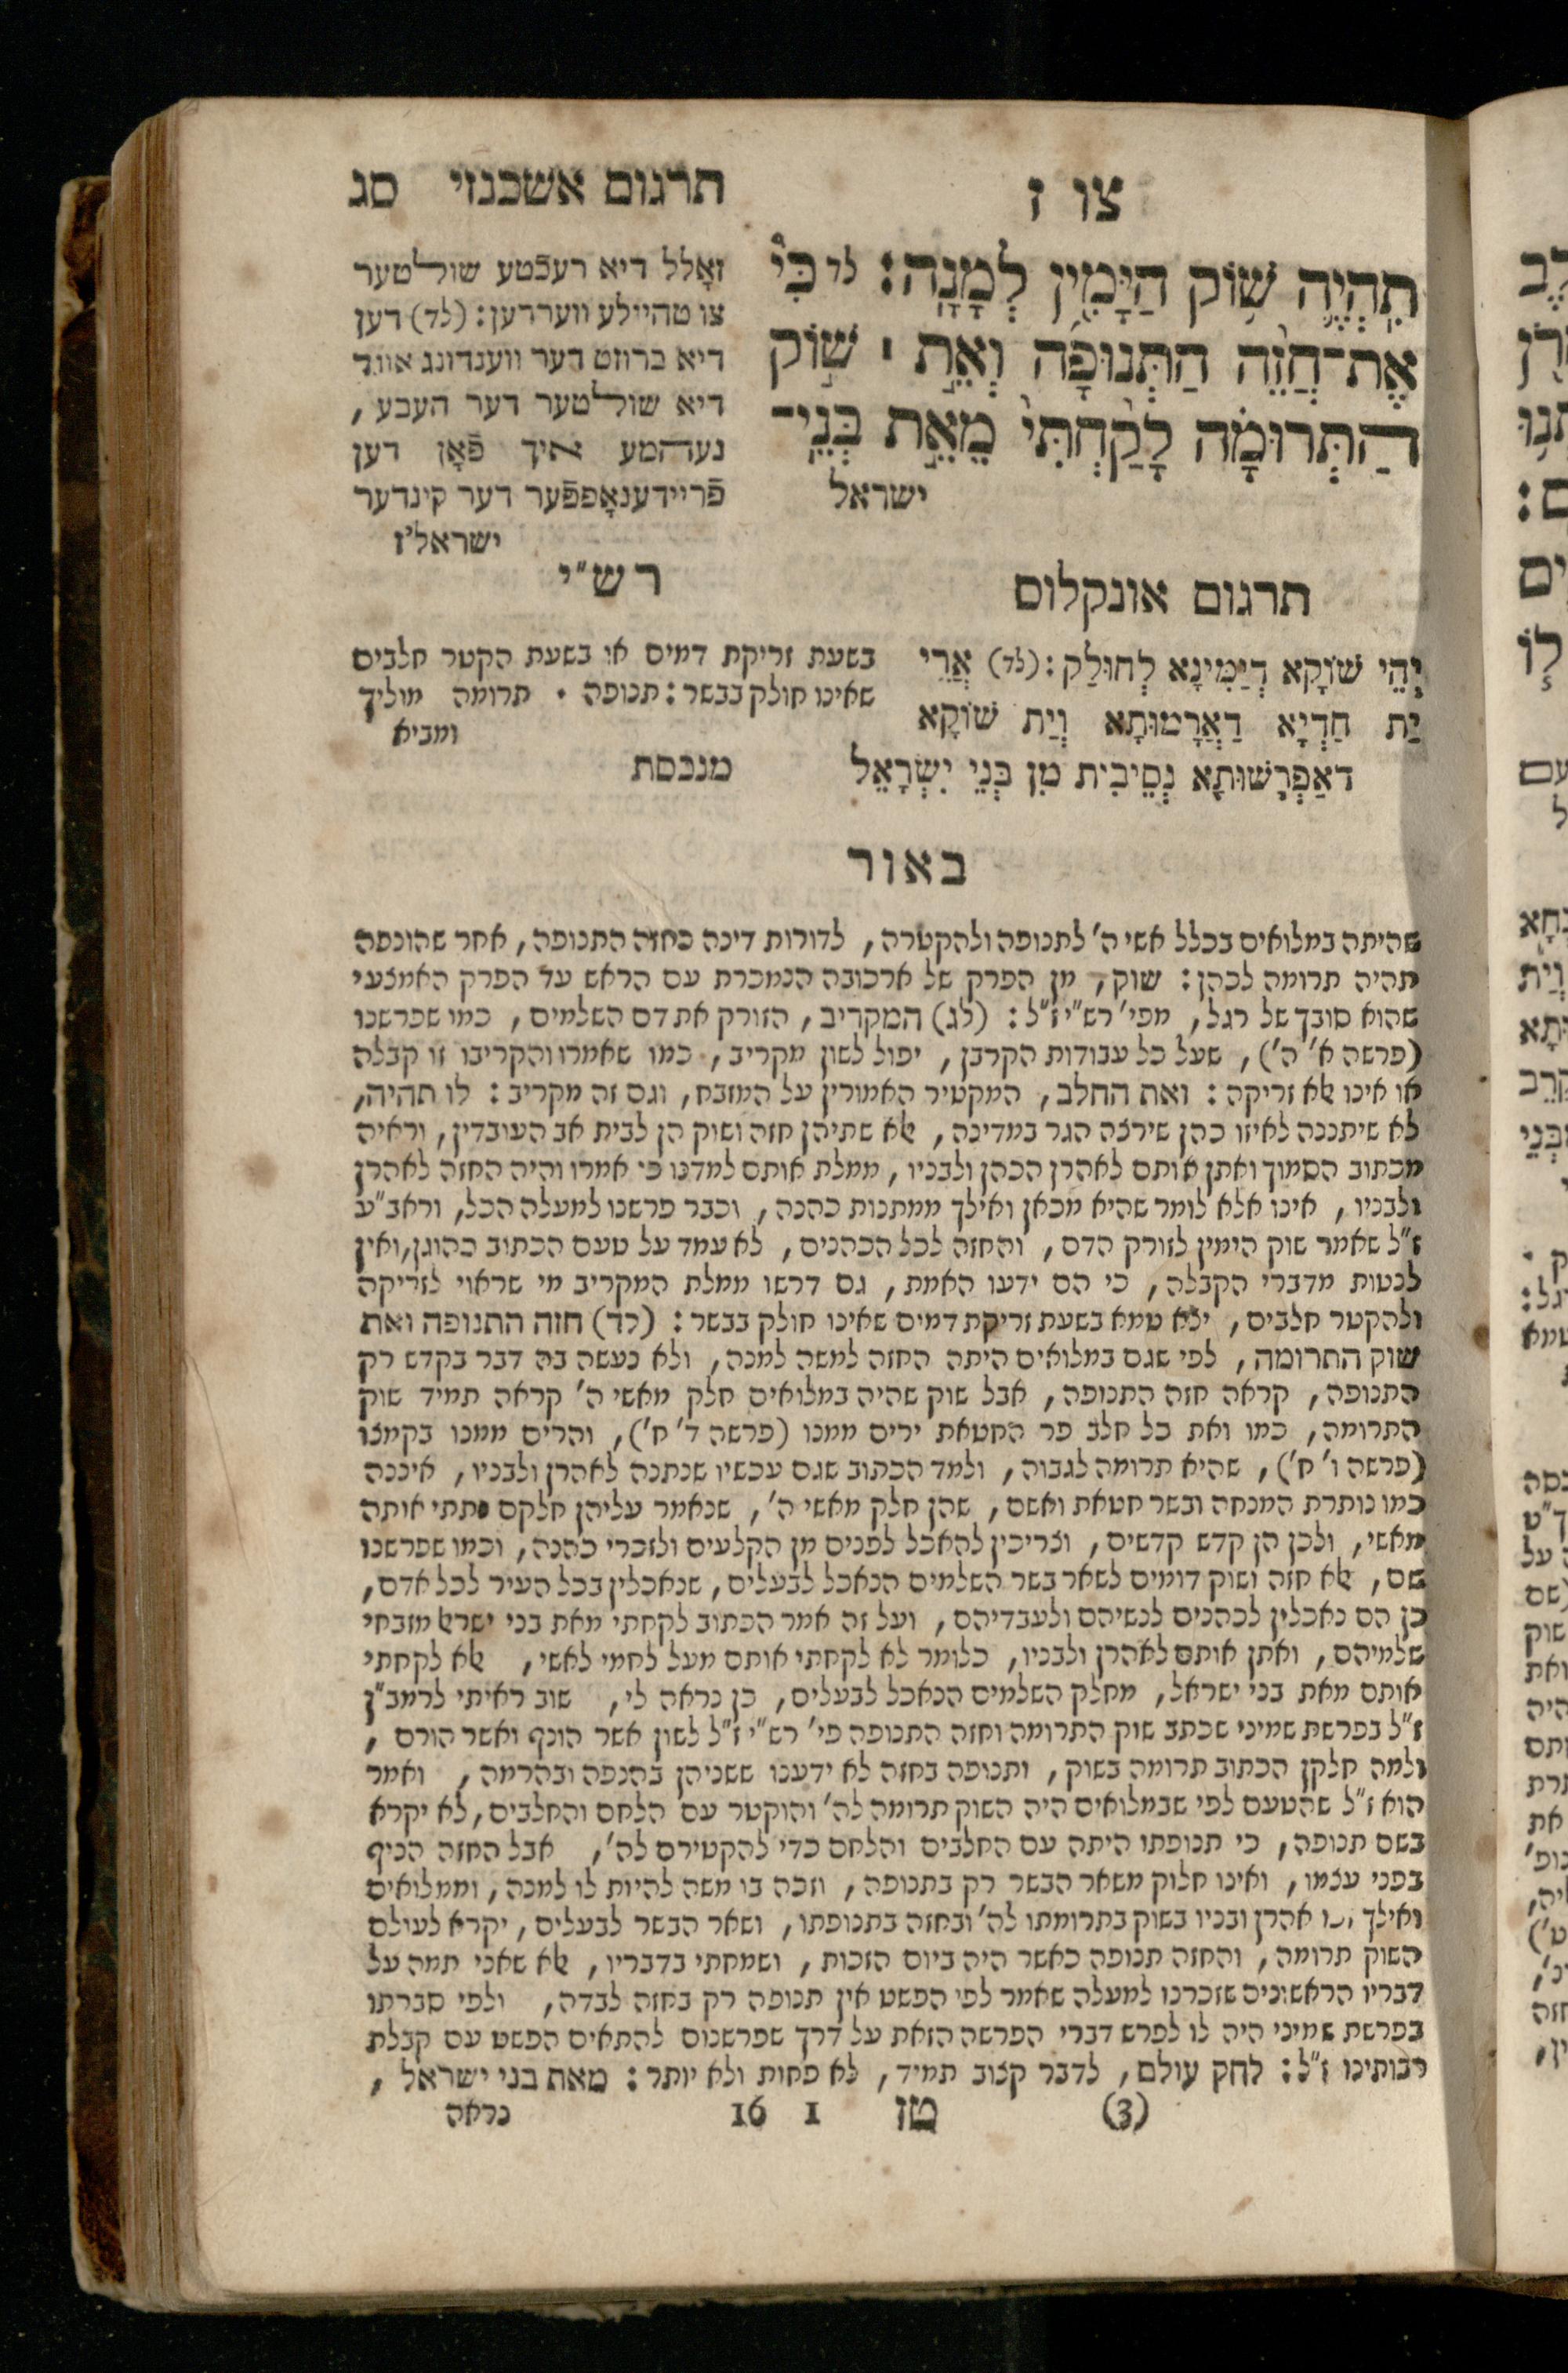 צו ז
תרגום אשכנזי סג
תִֽהְיֶ֛ה שׁ֥וֹק הַיָּמִ֖ין לְמָנָֽה׃ לד כִּי֩
אֶת־חֲזֵ֨ה הַתְּנוּפָ֜ה וְאֵ֣ת ׀ שׁ֣וֹק
הַתְּרוּמָ֗ה לָקַ֙חְתִּי֙ מֵאֵ֣ת בְּנֵֽי־
ישראל
זאָלל דיא רעכֿטע שולטער
צו טהיילע ווערדען: (לד) דען
דיא ברוסט דער ווענדונג אונד
דיא שולטער דער העבע,
נעהמע איך פֿאָן דען
פֿריידענאָפּפֿער דער קינדער
ישראל'ז
תרגום אונקלוס
יְהֵי שׁוֹקָא דְיַמִּינָא לְחוּלַק: (לד) אֲרֵי
יַת חַדְיָא דַאֲרָמוּתָא וְיַת שׁוֹקָא
דאַפְרָשׁוּתָא נְסֵיבִית מִן בְּנֵי יִשְׂרָאֵל
מנכסת
רש"י
בשעת זריקת דמים או בשעת הקטר חלבים
שאינו חולק בבשר: תנופה · תרומה מוליך
ומביא
באור
שהיתה במלואים בכלל אשי ה' לתנופה ולהקטרה, לדורות דינה כחזה התנופה, אחר שהונפה
תהיה תרומה לכהן: שוק, מן הפרק של ארכובה הנמכרת עם הראש עד הפרק האמצעי
שהוא סובך של רגל, מפי' רש"י ז"ל: (לג) המקריב, הזורק את דם השלמים, כמו שפרשנו
(פרשה א' ה'), שעל כל עבודות הקרבן, יפול לשון מקריב, כמו שאמרו והקריבו זו קבלה
או אינו אלא זריקה: ואת החלב, המקטיר האמורין על המזבח, וגם זה מקריב: לו תהיה,
לא שיתננה לאיזו כהן שירצה הגר במדינה, אלא שתיהן חזה ושוק הן לבית אב העובדין, וראיה
מכתוב הסמוך ואתן אותם לאהרן הכהן ולבניו, ממלת אותם למדנו כי אמרו והיה החזה לאהרן
ולבניו, אינו אלא לומר שהיא מכאן ואילך ממתנות כהנה, וכבר פרשנו למעלה הכל, וראב"ע
ז"ל שאמר שוק הימין לזורק הדם, והחזה לכל הכהנים, לא עמד על טעם הכתוב כהוגן, ואין
לנטות מדברי הקבלה, כי הם ידעו האמת, גם דרשו ממלת המקריב מי שראוי לזריקה
ולהקטר חלבים, יצא טמא בשעת זריקת דמים שאינו חולק בבשר: (לד) חזה התנופה ואת
שוק התרומה, לפי שגם במלואים היתה החזה למשה למנה, ולא נעשה בה דבר בקדש רק
התנופה, קראה חזה התנופה, אבל שוק שהיה במלואים חלק מאשי ה' קראה תמיד שוק
התרומה, כמו ואת כל חלב פר החטאת ירים ממנו (פרשה ד' ח'), והרים ממנו בקמצו
(פרשה ו' ח'), שהיא תרומה לגבוה, ולמד הכתוב שגם עכשיו שנתנה לאהרן ולבניו, איננה
כמו נותרת המנחה ובשר חטאת ואשם, שהן חלק מאשי ה', שנאמר עליהן חלקם נתתי אותה
מאשי, ולכן הן קדש קדשים, וצריכין להאכל לפנים מן הקלעים ולזכרי כהנה, וכמו שפרשנו
שם, אלא חזה ושוק דומים לשאר בשר השלמים הנאכל לבעלים, שנאכלין בכל העיר לכל אדם,
כן הם נאכלין לכהנים לנשיהם ולעבדיהם, ועל זה אמר הכתוב לקחתי מאת בני ישראל מזבחי
שלמיהם, ואתן אותם לאהרן ולבניו, כלומר לא לקחתי אותם מעל לחמי לאשי, אלא לקחתי
אותם מאת בני ישראל, מחלק השלמים הנאכל לבעלים, כן נראה לי, שוב ראיתי לרמב"ן
ז"ל בפרשת שמיני שכתב שוק התרומה וחזה התנופה פי' רש"י ז"ל לשון אשר הונף ואשר הורם,
ולמה חלקן הכתוב תרומה בשוק, ותנופה בחזה לא ידענו ששניהן בהנפה ובהרמה, ואמר
הוא ז"ל שהטעם לפי שבמלואים היה השוק תרומה לה' והוקטר עם הלחם והחלבים, לא יקרא
בשם תנופה, כי תנופתו היתה עם החלבים והלחם כדי להקטירם לה', אבל החזה הניף
בפני עצמו, ואינו חלוק משאר הבשר רק בתנופה, וזכה בו משה להיות לו למנה, וממלואים
ואילך אהרן ובניו בשוק בתרומתו לה' ובחזה בתנופתו, ושאר הבשר לבעלים, יקרא לעולם
השוק תרומה, והחזה תנופה כאשר היה ביום הזכות, ושמחתי בדבריו, אלא שאני תמה על
דבריו הראשונים שזכרנו למעלה שאמר לפי הפשט אין תנופה רק בחזה לבדה, ולפי סברתו
בפרשת שמיני היה לו לפרש דברי הפרשה הזאת על דרך שפרשנום להתאים הפשט עם קבלת
רבותינו ז"ל: לחק עולם, לדבר קצוב תמיד, לא פחות ולא יותר: מאת בני ישראל,
(3) טז 1 16 נראה